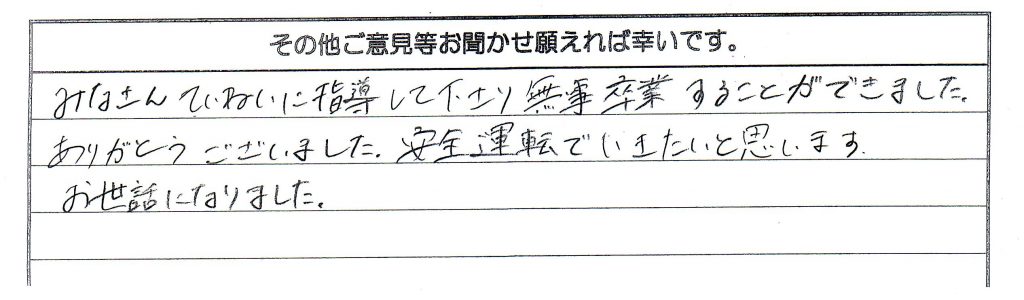 その他ご意見等お聞かせ願えれば幸いです。
みなさんていねいに指導して下さり無事卒業することができました。
ありがとうございました。安全運転でいきたいと思います.
お世話になりました。